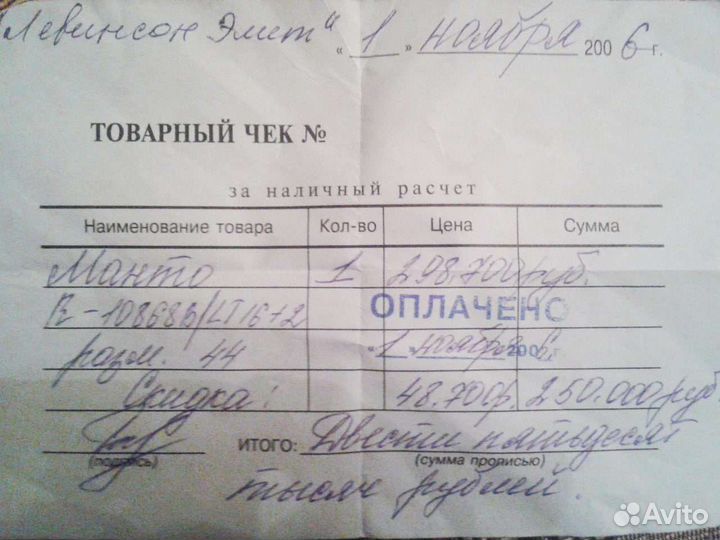 "Левинсон Элит" "1" ноября 2006 г.
ТОВАРНЫЙ ЧЕК №
за наличный расчет
Наименование товара Кол-во Цена Сумма
Манто 1 298.700 руб.
R-108686/LT16+2 ОПЛАЧЕНО
разм. 44 "1" ноября 2006 г
Скидка: 48.700р. 250.000 руб.
ИТОГО: Двести пятьдесят
(подпись) (сумма прописью)
тысяч рублей.
Avito